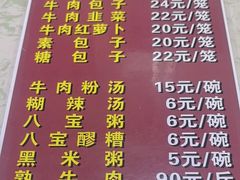 牛肉包子 24元/笼
牛肉韭菜 22元/笼
牛肉红萝卜 20元/笼
素包子 20元/笼
糖包子 22元/笼
牛肉粉汤 15元/碗
糊辣汤 6元/碗
八宝粥 6元/碗
八宝醪糟 6元/碗
黑米粥 5元/碗
熟牛肉 90元/斤